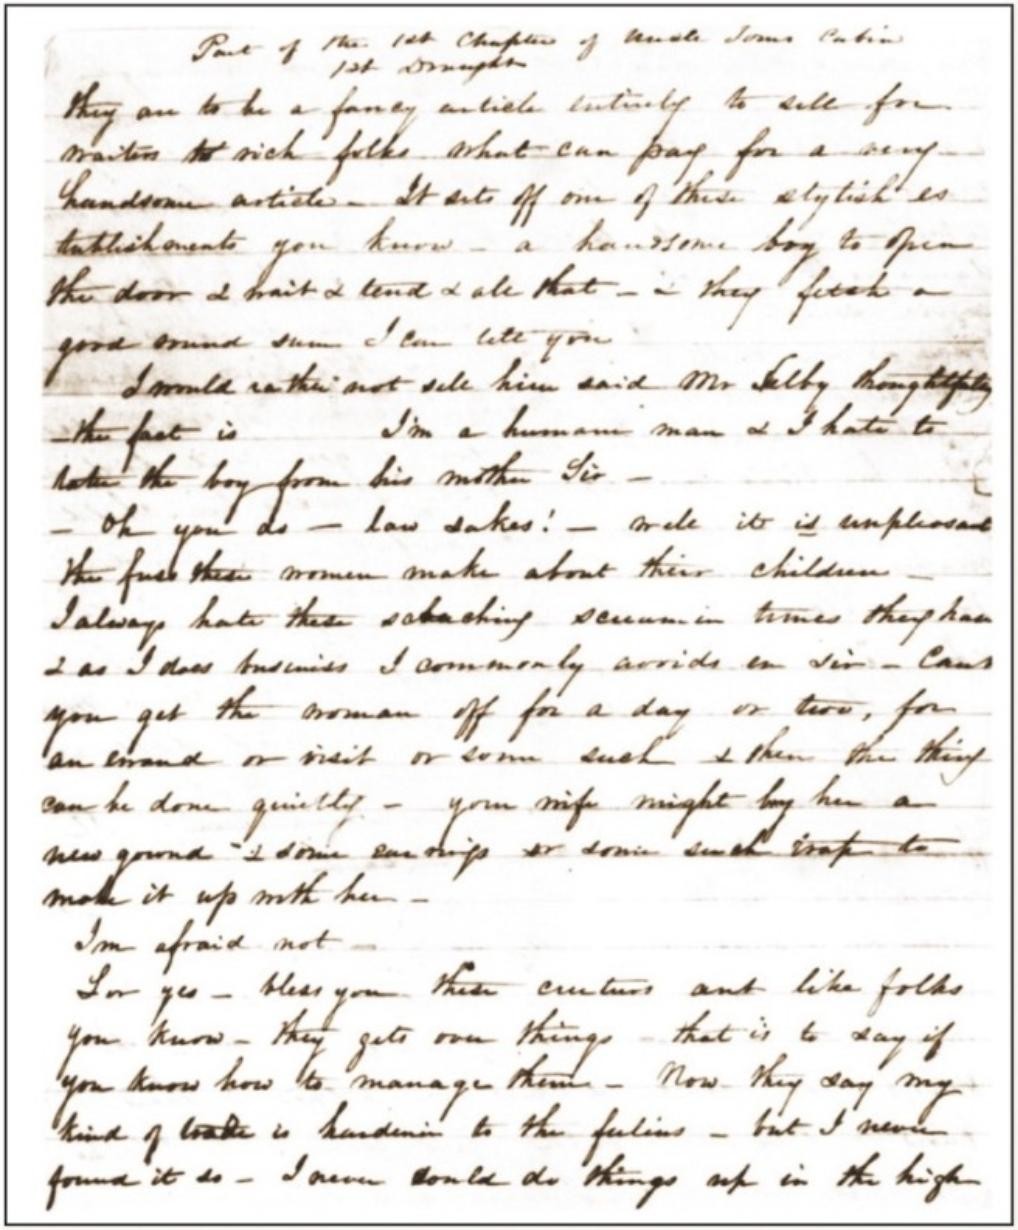 Part of the 1st Chapter of Uncle Toms Cabin
1st Draught
they are to be a fancy article entirely to sell for
waiters to rich folks what can pay for a very
handsome article – It sets off one of these stylish es
tablishments you know – a handsome boy to open
the door & wait & tend & all that – & they fetch a
good round sum I can tell you
I would rather not sell him said Mr Selby thoughtfully
– the fact is I'm a humane man & I hate to
take the boy from his mother Sir –
– Oh you do – law sakes! – well it is unpleasant
the fuss these women make about their children –
I always hate these screaching screamin times they have
& as I does business I commonly avoids em sir – Cant
you get the woman off for a day or two, for
an errand or visit or some such & then the thing
can be done quietly – your wife might buy her a
new gownd & some earrings or some such trap to
make it up with her –
I'm afraid not –
Lor yes – bless you these creeturs ant like folks
you know – they gets over things – that is to say if
you know how to manage them – Now they say my
kind of trade is hardenin to the feelins – but I never
found it so – I never could do things up in the high